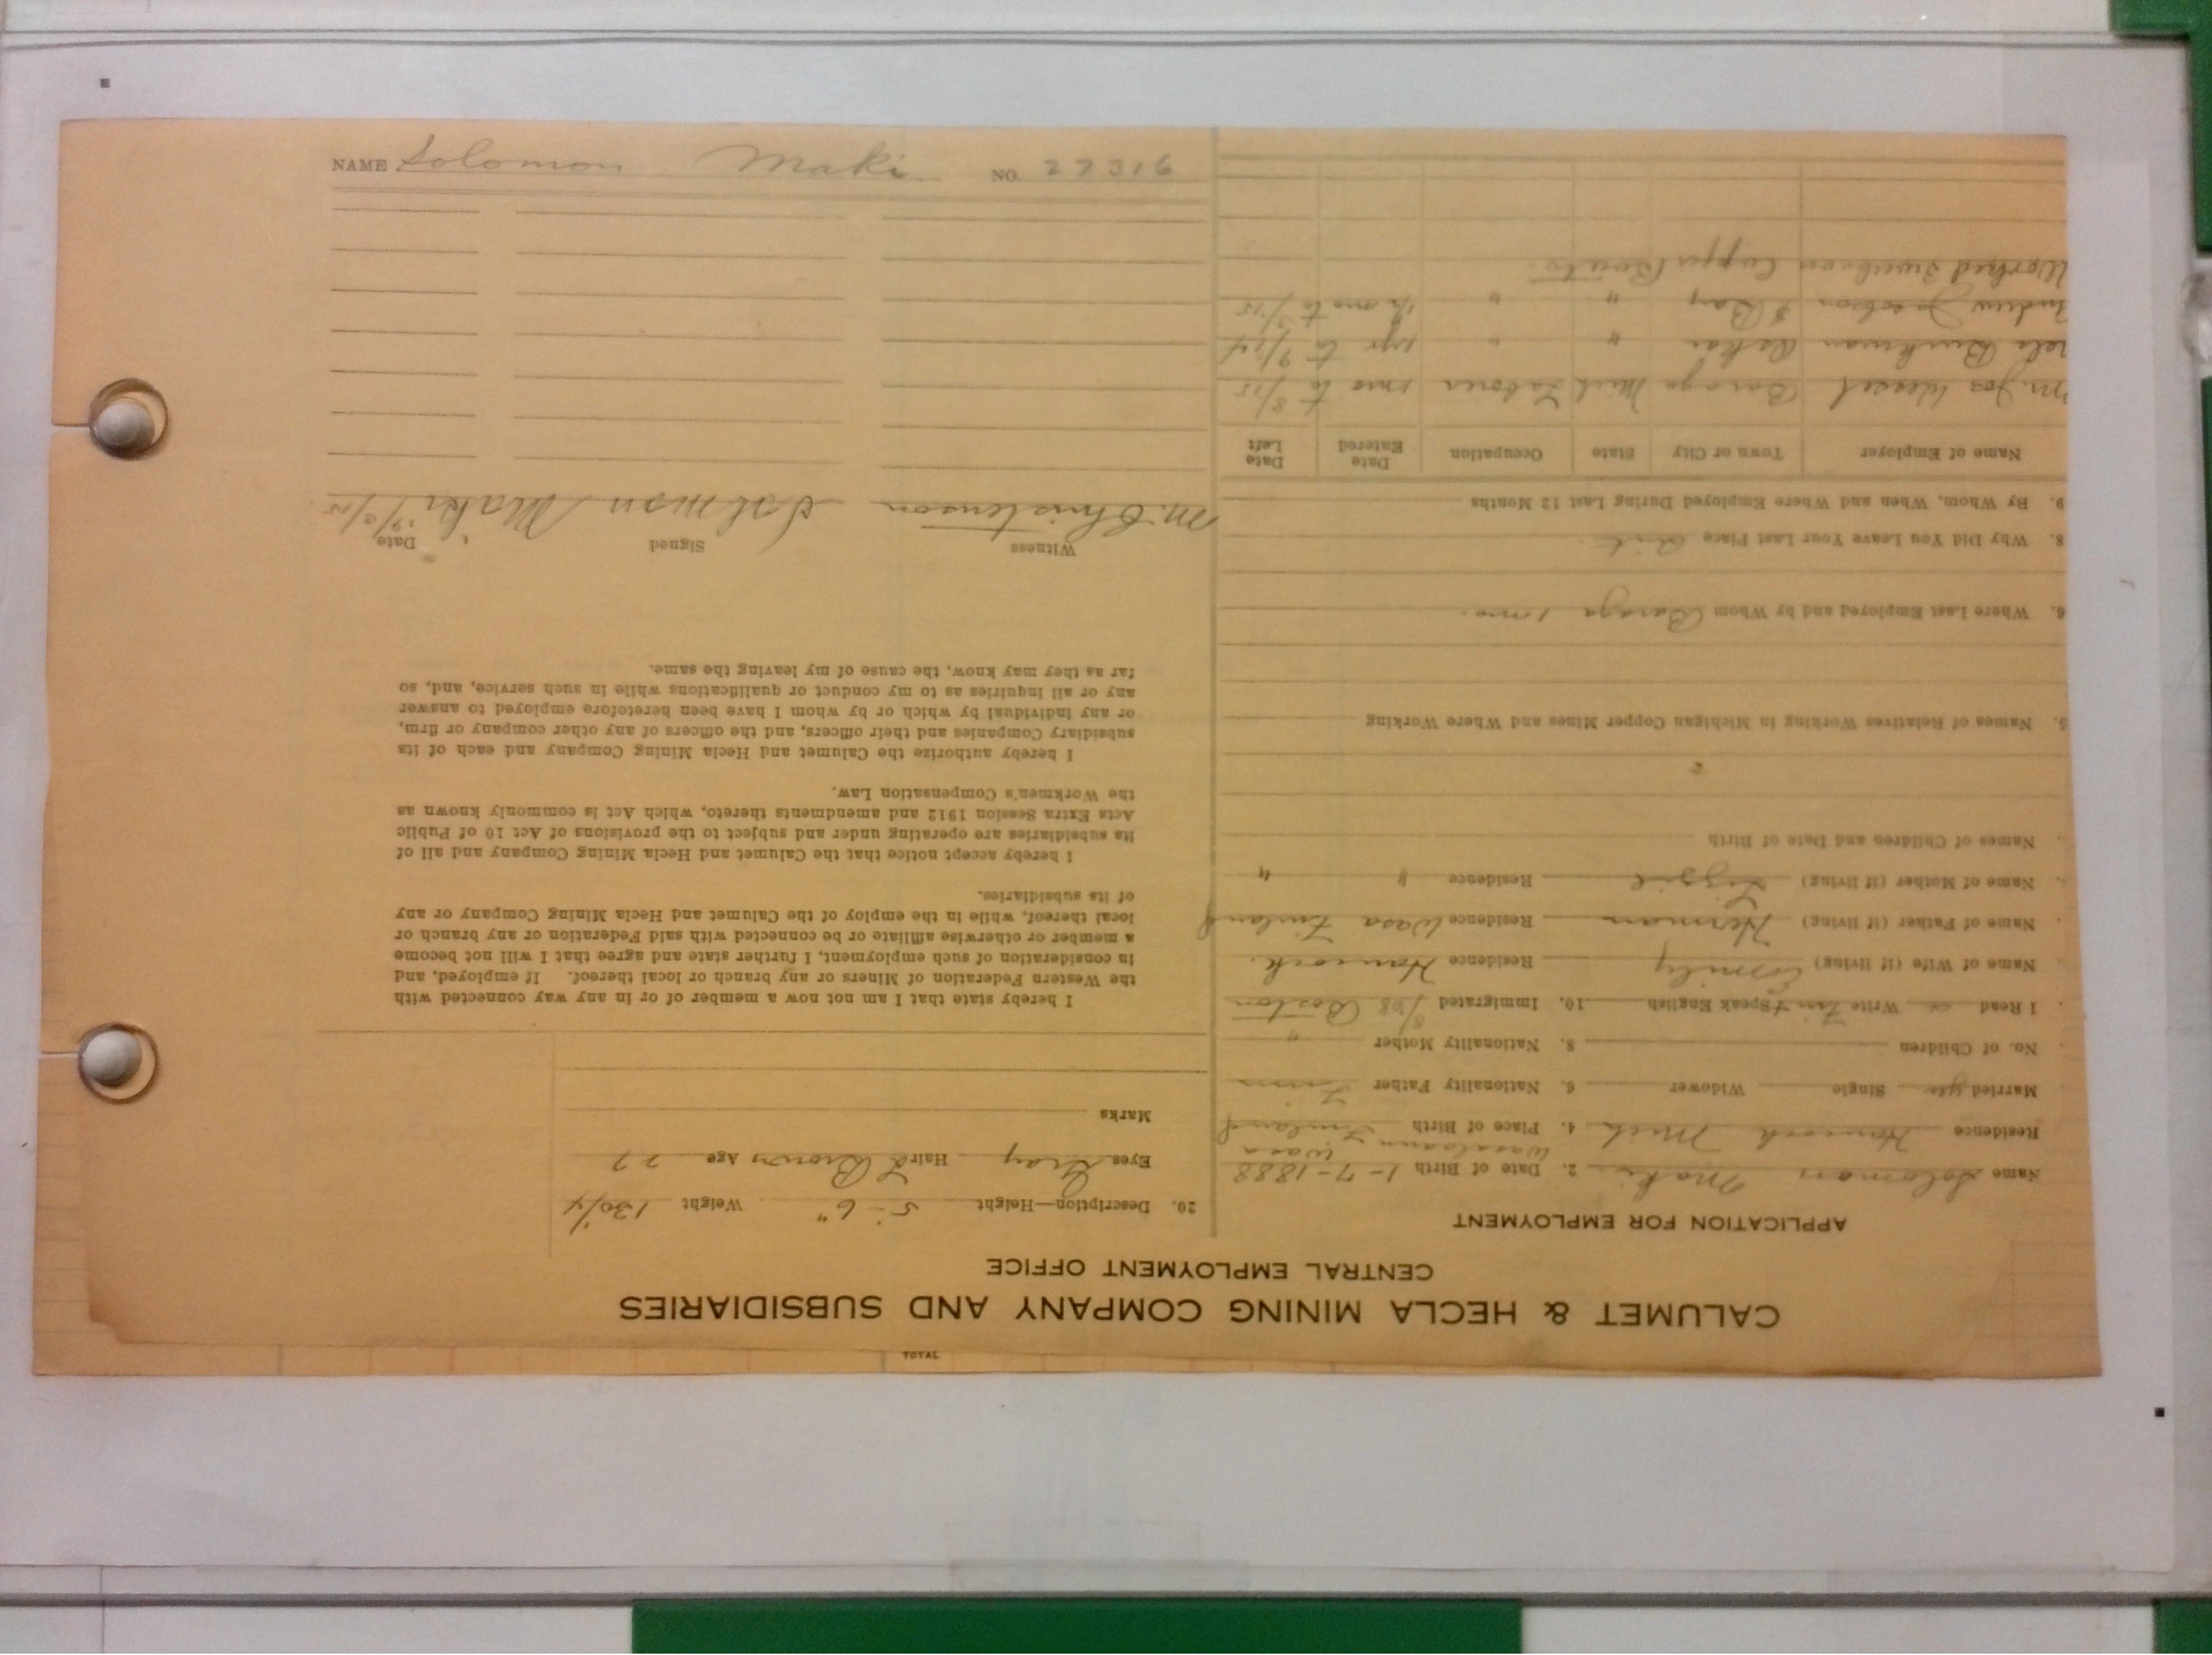 NAME Solomon Maki NO. 22316
CALUMET & HECLA MINING COMPANY AND SUBSIDIARIES
CENTRAL EMPLOYMENT OFFICE
APPLICATION FOR EMPLOYMENT
Name Solomon Maki 2. Date of Birth 1-7-1888
Residence Hancock Mich 4. Place of Birth Wasa Finland
Married yes Single Widower 6. Nationality Father Finn
No. of Children 8. Nationality Mother "
I Read Write Finn Speak English 10. Immigrated 8/08 Boston
Name of Wife (if living) Emily Residence Hancock.
Name of Father (if living) Herman Residence Wasa Finland
Name of Mother (if living) Lizzie Residence " "
Names of Children and Date of Birth
5. Names of Relatives Working in Michigan Copper Mines and Where Working
6. Where Last Employed and by Whom Baraga 1 mo.
8. Why Did You Leave Your Last Place Quit
9. By Whom, When and Where Employed During Last 12 Months
Name of Employer Town or City State Occupation Date Entered Date Left
M. Jos Wessel Baraga Mich Laborer 1 mo to 8/15
Askar " " 1 yr to 9/14
Andrew Jacobson Bay " " to 3/15
Worked on Copper Boats.
20. Description—Height 5'-6" Weight 130 1/4
Eyes Gray Hair L Brown Age 27
Marks
I hereby state that I am not now a member of or in any way connected with
the Western Federation of Miners or any branch or local thereof. If employed, and
in consideration of such employment, I further state and agree that I will not become
a member or otherwise affiliate or be connected with said Federation or any branch or
local thereof, while in the employ of the Calumet and Hecla Mining Company or any
of its subsidiaries.
I hereby accept notice that the Calumet and Hecla Mining Company and all of
its subsidiaries are operating under and subject to the provisions of Act 10 of Public
Acts Extra Session 1912 and amendments thereto, which Act is commonly known as
the Workmen's Compensation Law.
I hereby authorize the Calumet and Hecla Mining Company and each of its
subsidiary Companies and their officers, and the officers of any other company or firm,
or any individual by which or by whom I have been heretofore employed to answer
any or all inquiries as to my conduct or qualifications while in such service, and, so
far as they may know, the cause of my leaving the same.
Witness Signed Date
M. Christenson Solmon Maki
TOTAL